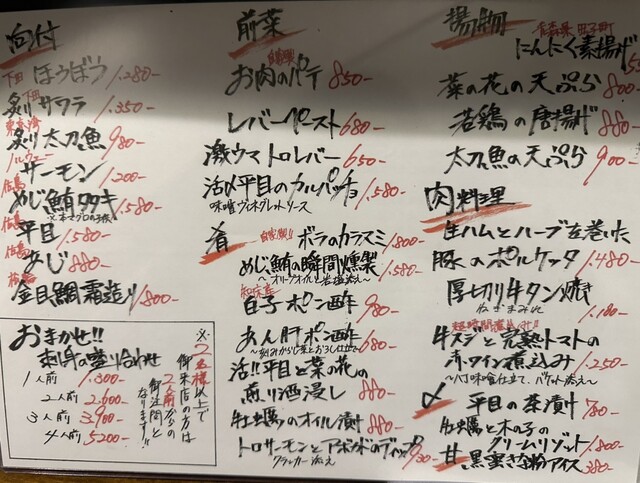 向付
下田 ほうぼう 1.280-
下田 炙りサワラ 1.350-
東京湾
炙り太刀魚 980-
ノルウェー
サーモン 1.200-
めじ鮪タタキ 1.580-
※本マグロの子供
平目 1.580-
あじ 880-
金目鯛霜造り 1.800-
おまかせ!!
刺身の盛り合わせ
1人前 1.300-
2人前 2.600-
3人前 3.900-
4人前 5200-
※2名様以上で
御来店の方は
2人前からの
御注文と
なります!!
前菜
自家製
お肉のパテ 850-
レバーペースト 680-
激ウマトロレバー 650-
活〆平目のカルパッチョ 1.580-
味噌ヴィネグレットソース
肴
自家製!! ボラのカラスミ 1.800-
めじ鮪の瞬間燻製 1.580-
〜オリーブオイルと岩塩添え〜
白子ポン酢 980-
あん肝ポン酢 680-
〜刻みからし菜とおろし仕立て
活!!平目と菜の花の
煎り酒浸し 880-
牡蠣のオイル漬 880-
トロサーモンとアボカドのディップ 930-
クラッカー添え
揚物
青森県 田子町
にんにく素揚げ
菜の花の天ぷら 800-
若鶏の唐揚げ 880-
太刀魚の天ぷら 900-
肉料理
生ハムとハーブを巻いた
豚のポルケッタ 1.480-
厚切り牛タン焼き
ねぎまみれ 1.180-
超時間煮込み!!
牛スジと完熟トマトの
赤ワイン煮込み 1.250-
〜八丁味噌仕立て、バゲット添え〜
〆 平目の茶漬 780-
牡蠣と木の子の
クリームリゾット 1.800-
甘 黒蜜きな粉アイス 380-